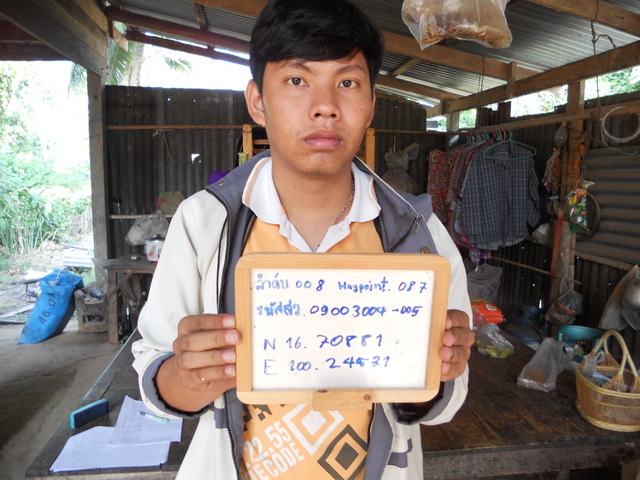 ลำดับ 008 Waypoint. 087
รหัสสว. 09003004-005
N 16. 70881
E 100. 24531
22.55
ECODE